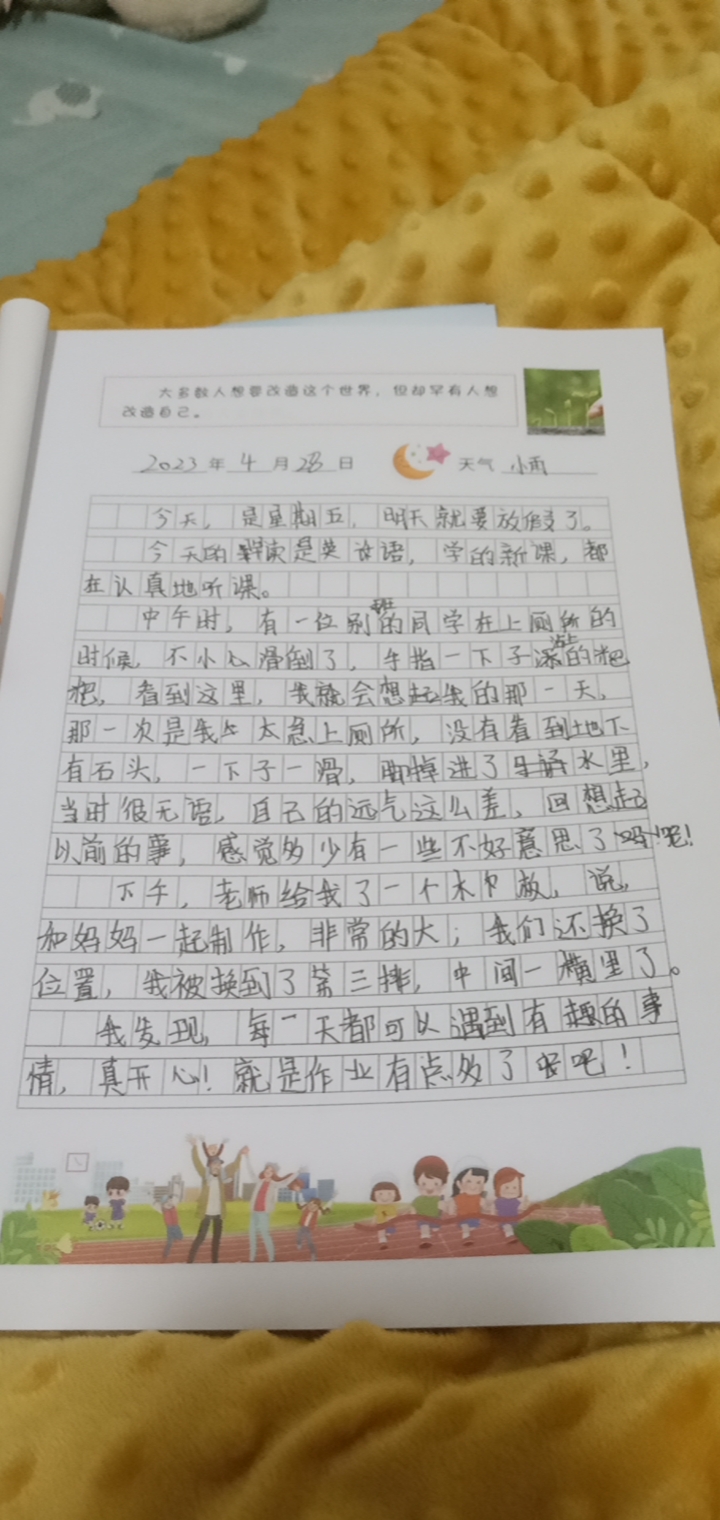 大多数人想要改造这个世界，但却罕有人想
改造自己。
2023年4月28日 天气 小雨
今天，是星期五，明天就要放假了。
今天的是英语，学的新课，都
在认真地听课。
中午时，有一位别班的同学在上厕所的
时候，不小心滑倒了，手指一下子沾上的粑
粑，看到这里，我就会想起我的那一天，
那一次是我太急上厕所，没有看到地下
有石头，一下子一滑，脚掉进了水里，
当时很无语，自己的远气这么差，回想起
以前的事，感觉多少有一些不好意思了吧！
下午，老师给我了一个木，说，
和妈妈一起制作，非常的大；我们还换了
位置，我被换到了第三排，中间一横里了。
我发现，每一天都可以遇到有趣的事
情，真开心！就是作业有点多了吧！